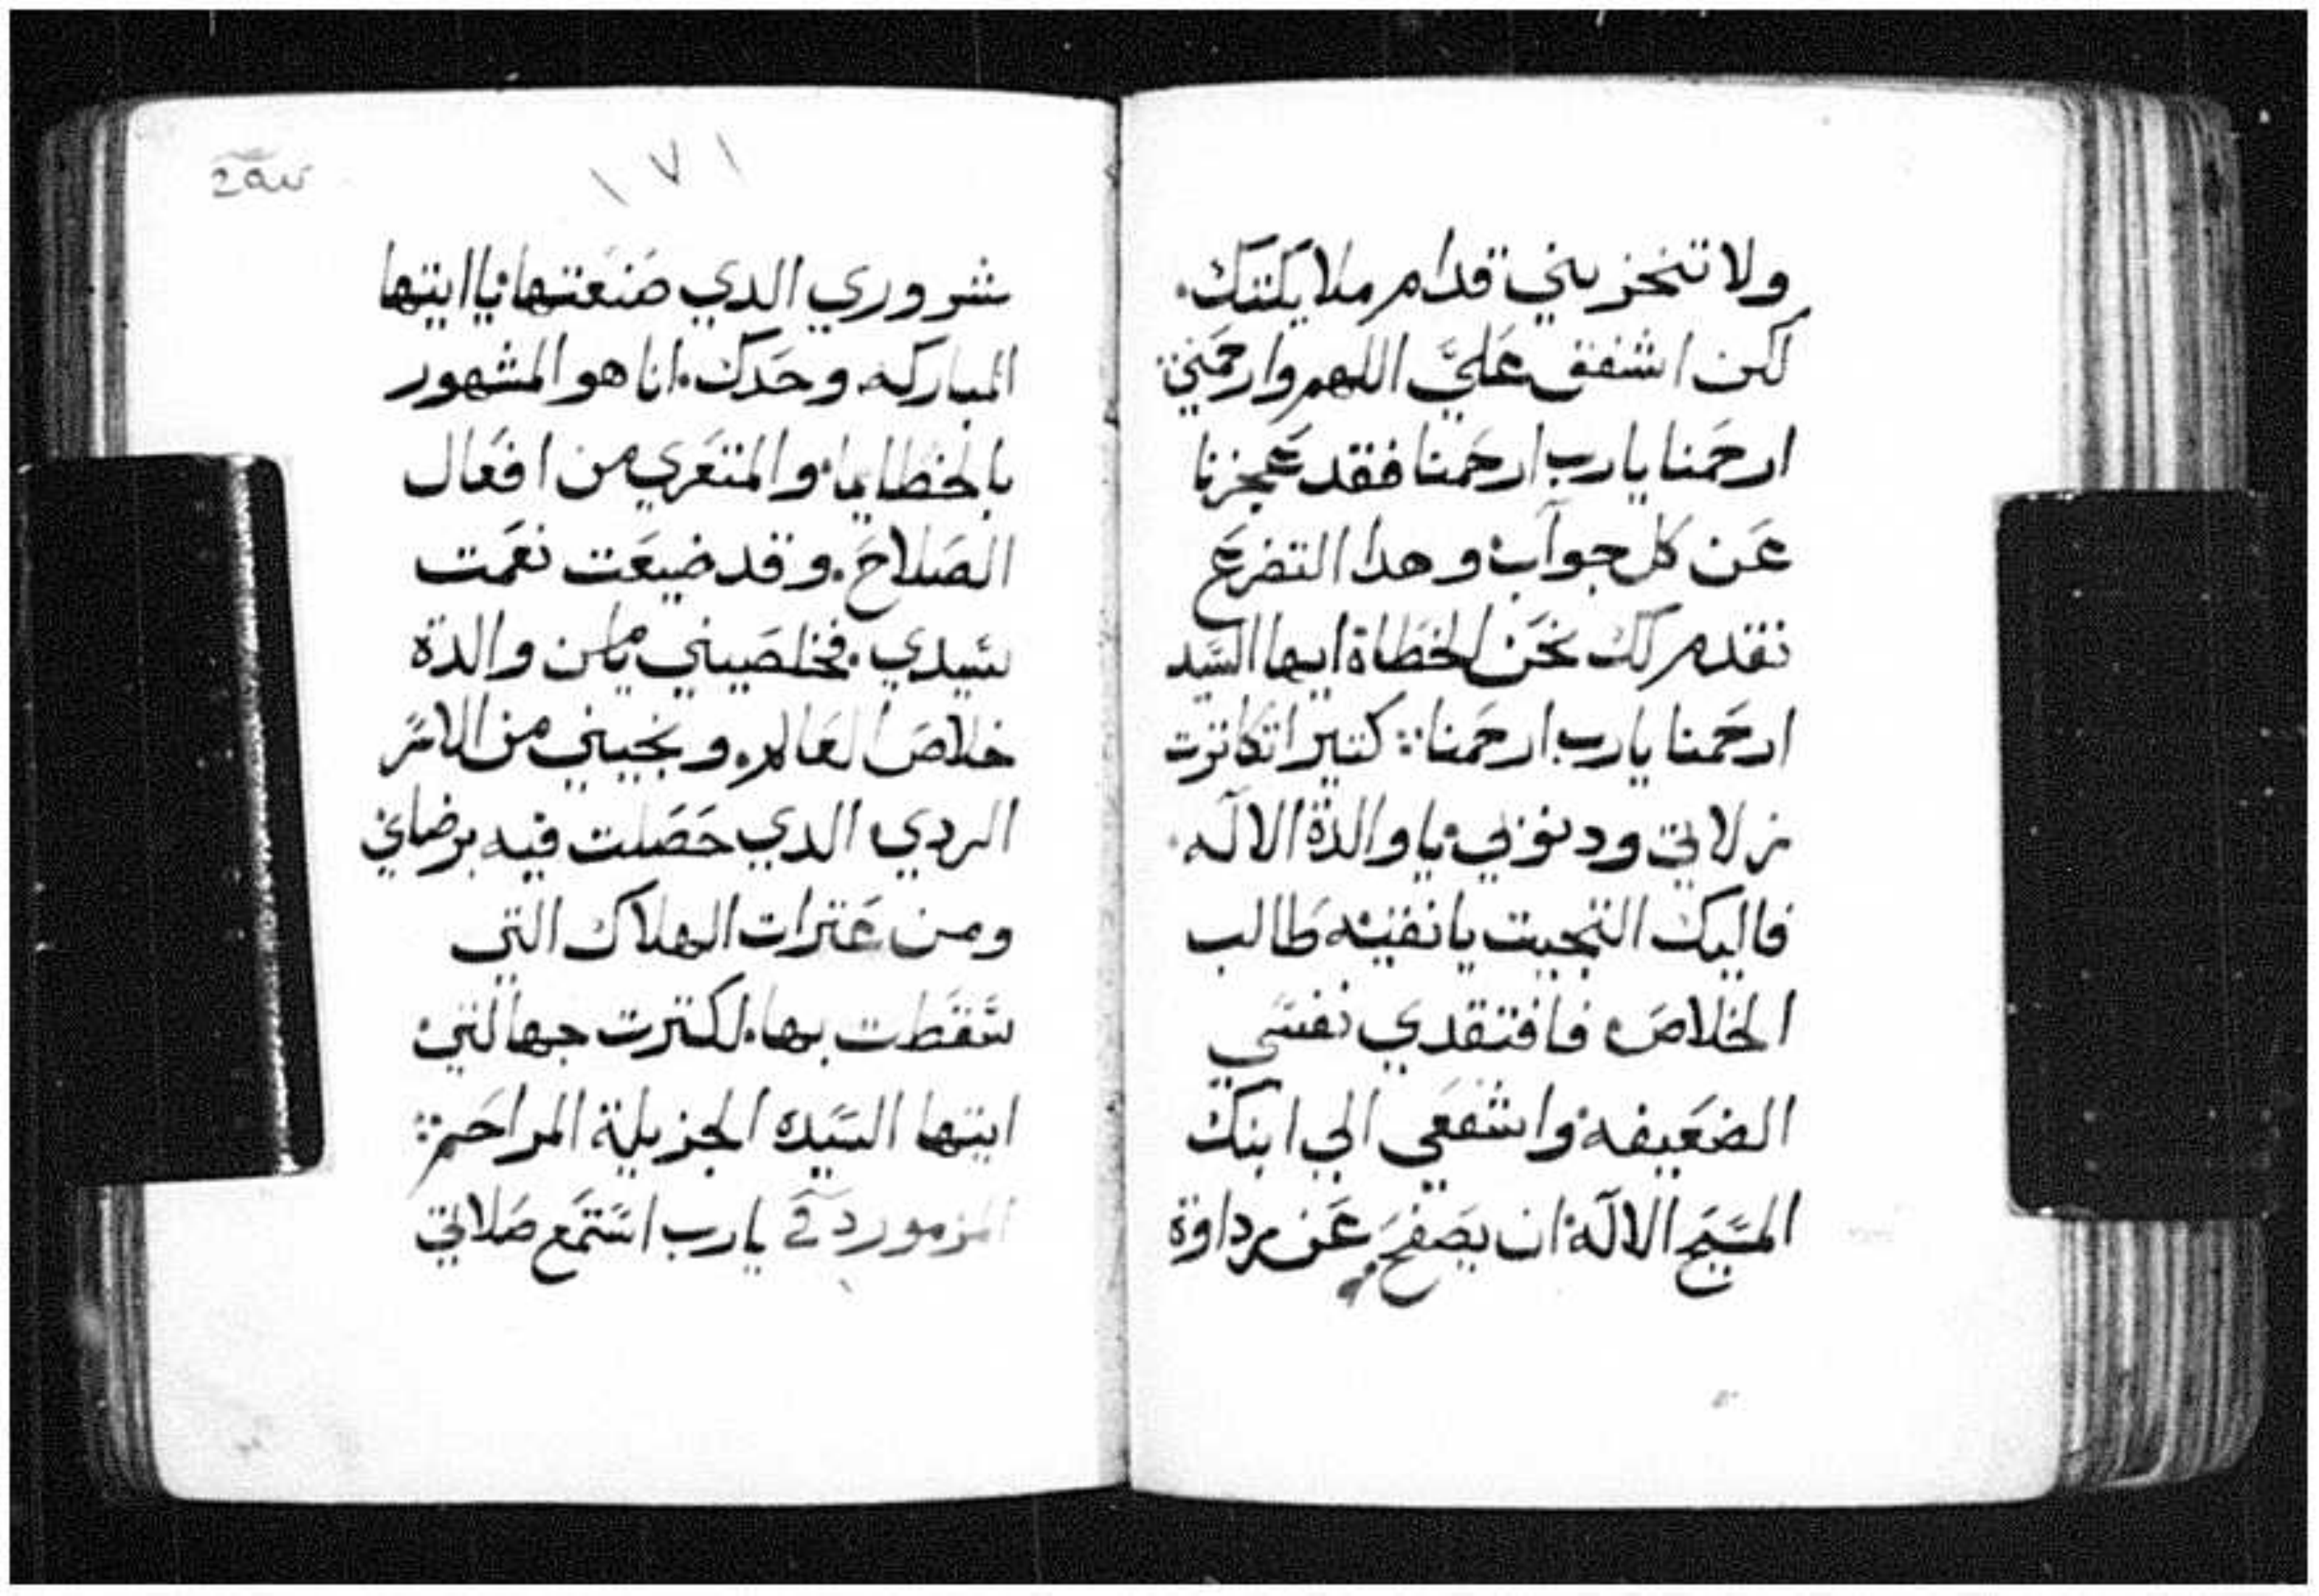 ولا تخزيني قدام ملايكتك.
لكن اشفق عليَّ اللهم وارحمني:
ارحمنا يا رب ارحمنا فقد عجزنا
عن كل جواب وهدا التضرع
نقدم لك نحن الخطاة ايها السيد
ارحمنا يا رب ارحمنا: كتيرا تكاترت
زلاتي ودنوبي يا والدة الاله.
فاليك التجيت يا نقيه طالب
الخلاص فافتقدي نفسي
الضعيفه واشفعي الي ابنك
المسيح الاله ان يصفح عن رداوة
١٧١
شروري الدي صنعتها يا ايتها
المباركه وحدك. انا هو المشهور
بالخطايا والمتعري من افعال
الصلاح. وقد ضيعت نعمت
سيدي. فخلصيني يا من والدة
خلاص العالم. ونجيني من الاسر
الردي الدي حصلت فيه برضاي
ومن عترات الهلاك التي
سقطت بها. لكترت جهالتي
ايتها السيده الجزيلة المراحم:
المزمور يا رب استمع صلاتي